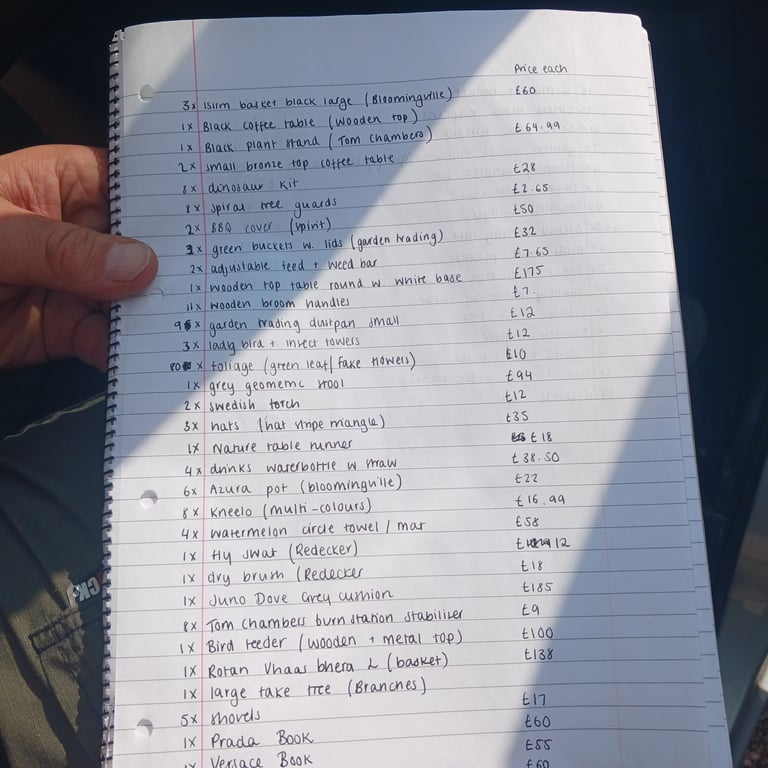 Price each
3x Islim basket black large (Bloomingville) £60
1x Black coffee table (wooden top)
1x Black plant stand (Tom Chambers) £64.99
2x small bronze top coffee table
8x dinosaur kit £28
8x spiral tree guards £2.65
2x BBQ cover (spirit) £50
3x green buckets w. lids (garden trading) £32
2x adjustable feed + weed bar £7.65
1x wooden top table round w. white base £175
11x wooden broom handles £7.
95x garden trading dustpan small £12
3x lady bird + insect towers £12
80x foliage (green leaf/fake flowers) £10
1x grey geometric stool £94
2x swedish torch £12
3x hats (hat stripe triangle) £35
1x Nature table runner £18
4x drinks waterbottle w straw £38.50
6x Azura pot (bloomingville) £22
8x Kneelo (multi-colours) £16.99
4x watermelon circle towel / mat £58
1x fly swat (Redecker) £12
1x dry brush (Redecker £18
1x Juno Dove Grey cushion £185
8x Tom Chambers burn station stabiliser £9
1x Bird feeder (wooden + metal top) £100
1x Rotan Vhaas bhera L (basket) £138
1x large fake tree (Branches)
5x shovels £17
1x Prada Book £60
1x Versace Book £55
£60